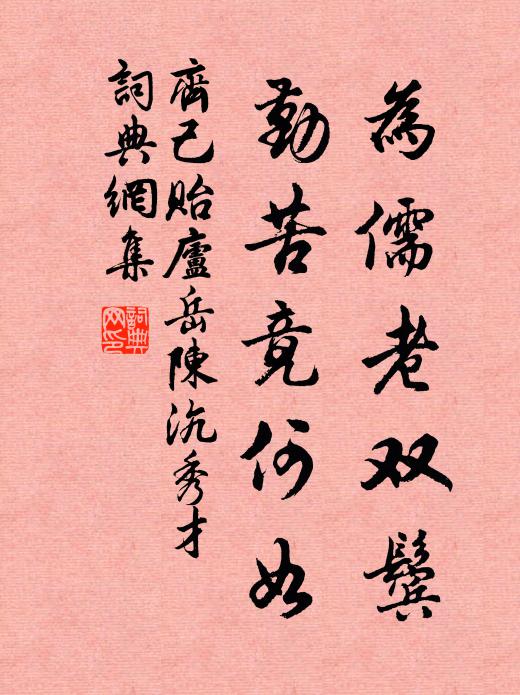 為儒老双鬢
勤苦竟何如
齊己貽廬岳陳沆秀才
詞典網集
詞典網印